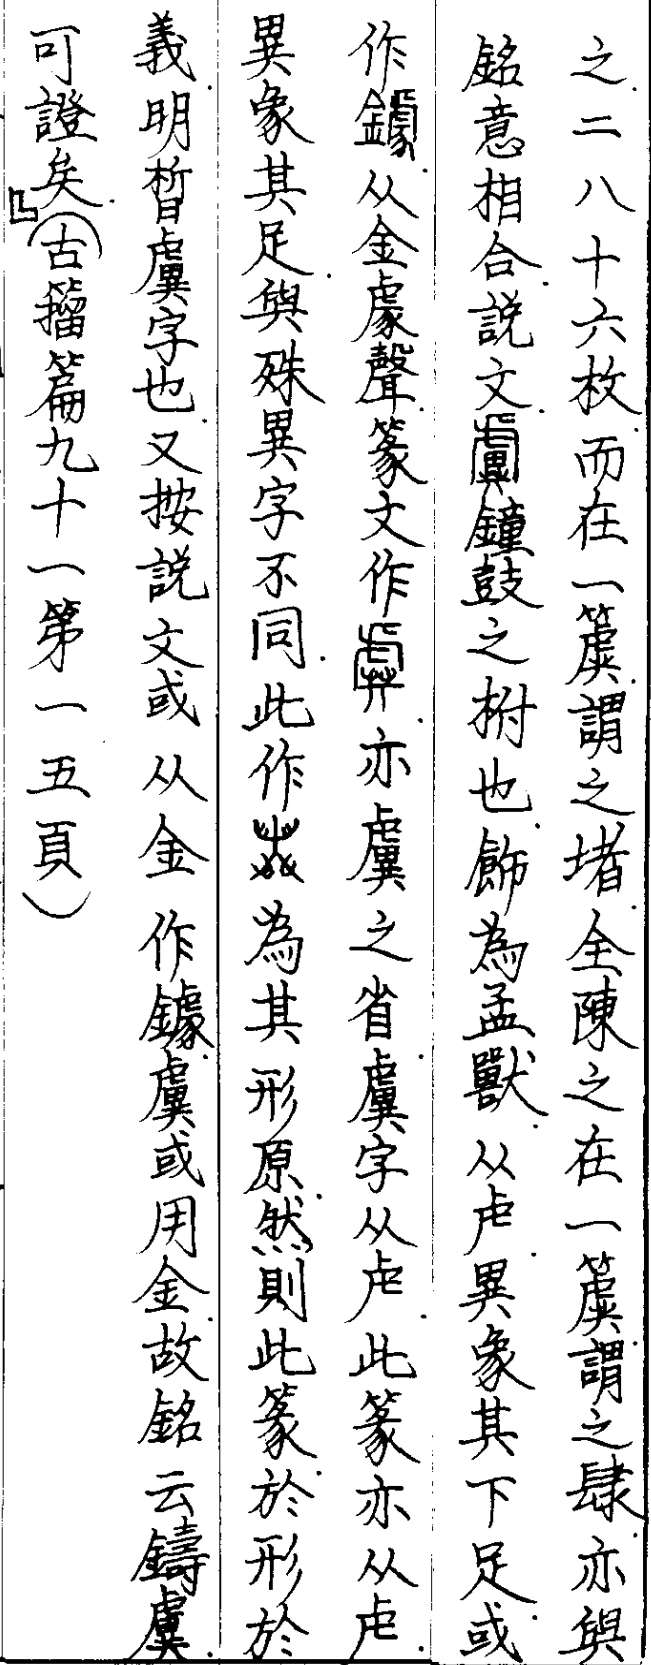 之二八十六枚而在一簴謂之堵全陳之在一簴謂之肆亦與
銘意相合説文鐘鼓之柎也飾為孟獸从虍異象其下足或
作鐻从金豦聲篆文作亦虡之省虡字从虍此篆亦从虍
異象其足與殊異字不同此作為其形原然則此篆於形於
義明晳虡字也又按説文或从金作鐻虡或用金故銘云鑄虡
可證矣」(古籀篇九十一第一五頁)